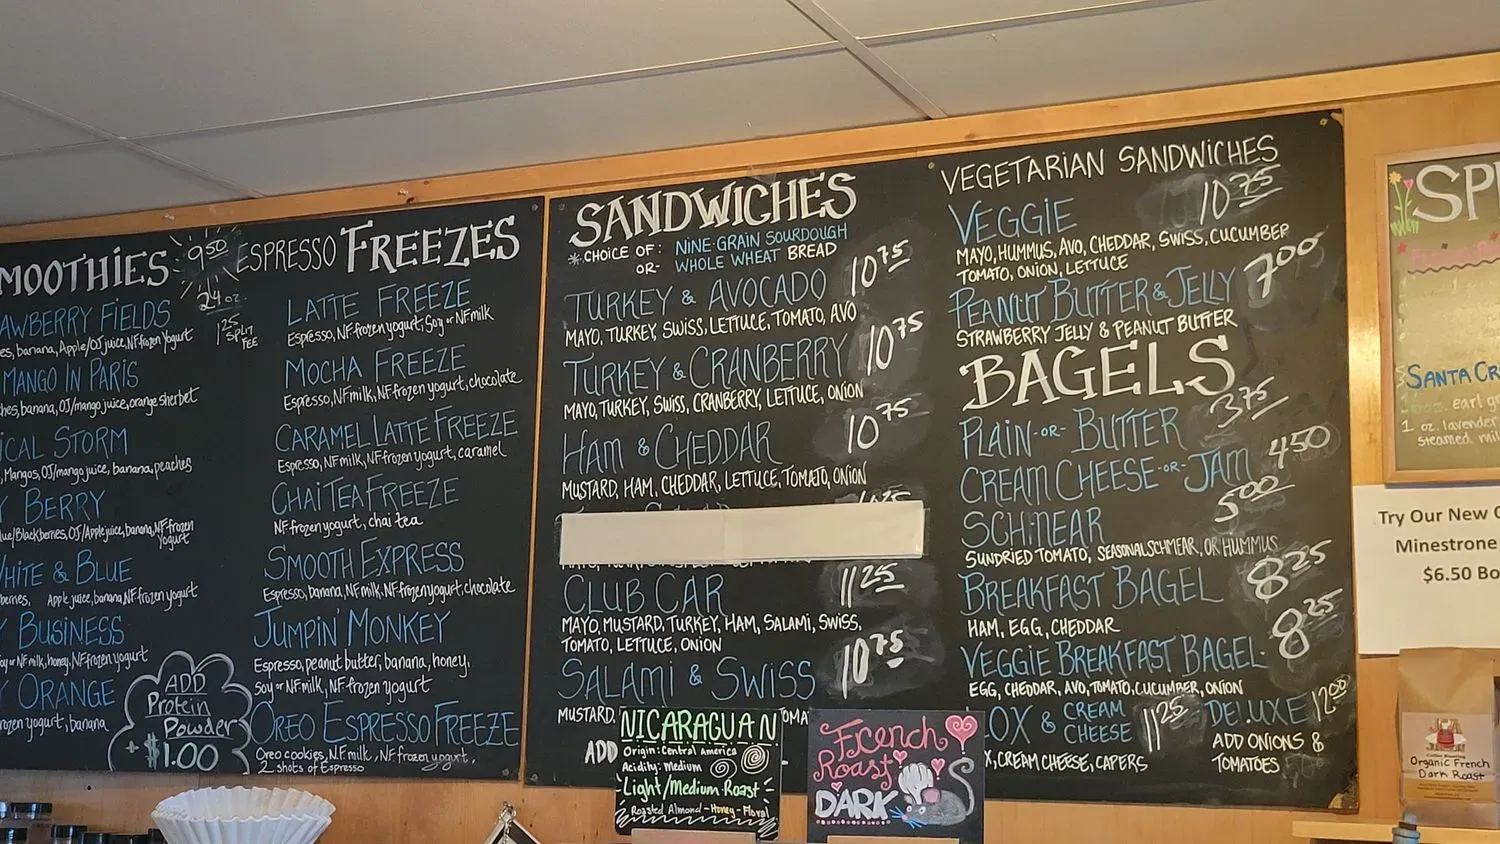 MOOTHIES
9.50
24 oz.
1.25 SPLIT FEE
AWBERRY FIELDS
es, banana, Apple/OJ juice, NF frozen Yogurt
MANGO IN PARIS
hes, banana, OJ/mango juice, orange sherbet
ICAL STORM
, Mangos, OJ/mango juice, banana, peaches
Y BERRY
lue/Blackberries, OJ/Apple juice, banana, NF frozen
yogurt
WHITE & BLUE
berries, Apple juice, banana, NF frozen yogurt
Y BUSINESS
Soy or NF milk, honey, NF frozen yogurt
Y ORANGE
rozen yogurt, banana
ADD
Protein
Powder
+ $1.00
ESPRESSO FREEZES
LATTE FREEZE
Espresso, NF frozen yogurt, Soy or NF milk
MOCHA FREEZE
Espresso, NF milk, NF frozen yogurt, chocolate
CARAMEL LATTE FREEZE
Espresso, NF milk, NF frozen yogurt, caramel
CHAI TEA FREEZE
NF frozen yogurt, chai tea
SMOOTH EXPRESS
Espresso, banana, NF milk, NF frozen yogurt, chocolate
JUMPIN' MONKEY
Espresso, peanut butter, banana, honey,
Soy or NF milk, NF frozen yogurt
OREO ESPRESSO FREEZE
Oreo cookies, N.F. milk, NF frozen yogurt,
2 shots of Espresso
SANDWICHES
*CHOICE OF: NINE GRAIN SOURDOUGH
OR- WHOLE WHEAT BREAD
TURKEY & AVOCADO 10 75
MAYO, TURKEY, SWISS, LETTUCE, TOMATO, AVO
TURKEY & CRANBERRY 10 75
MAYO, TURKEY, SWISS, CRANBERRY, LETTUCE, ONION
HAM & CHEDDAR 10 75
MUSTARD, HAM, CHEDDAR, LETTUCE, TOMATO, ONION
CLUB CAR 11 25
MAYO, MUSTARD, TURKEY, HAM, SALAMI, SWISS,
TOMATO, LETTUCE, ONION
SALAMI & SWISS 10 75
MUSTARD,
ADD
VEGETARIAN SANDWICHES
VEGGIE 10 75
MAYO, HUMMUS, AVO, CHEDDAR, SWISS, CUCUMBER
TOMATO, ONION, LETTUCE
PEANUT BUTTER & JELLY 7 00
STRAWBERRY JELLY & PEANUT BUTTER
BAGELS
PLAIN -OR- BUTTER 3 75
CREAM CHEESE -OR- JAM 4 50
SCHMEAR 5 00
SUNDRIED TOMATO, SEASONAL SCHMEAR, OR HUMMUS
BREAKFAST BAGEL 8 25
HAM, EGG, CHEDDAR
VEGGIE BREAKFAST BAGEL 8 25
EGG, CHEDDAR, AVO, TOMATO, CUCUMBER, ONION
OX & CREAM CHEESE 11 25 DELUXE 12 00
X, CREAM CHEESE, CAPERS
ADD ONIONS &
TOMATOES
NICARAGUAN
Origin: Central America
Acidity: Medium
Light/Medium Roast
Roasted Almond - Honey - Floral
French
Roast
DARK
SP
SANTA CR
earl gr
1 oz. lavender
steamed mil
Try Our New
Minestrone
$6.50 Bo
Organic French
Dark Roast